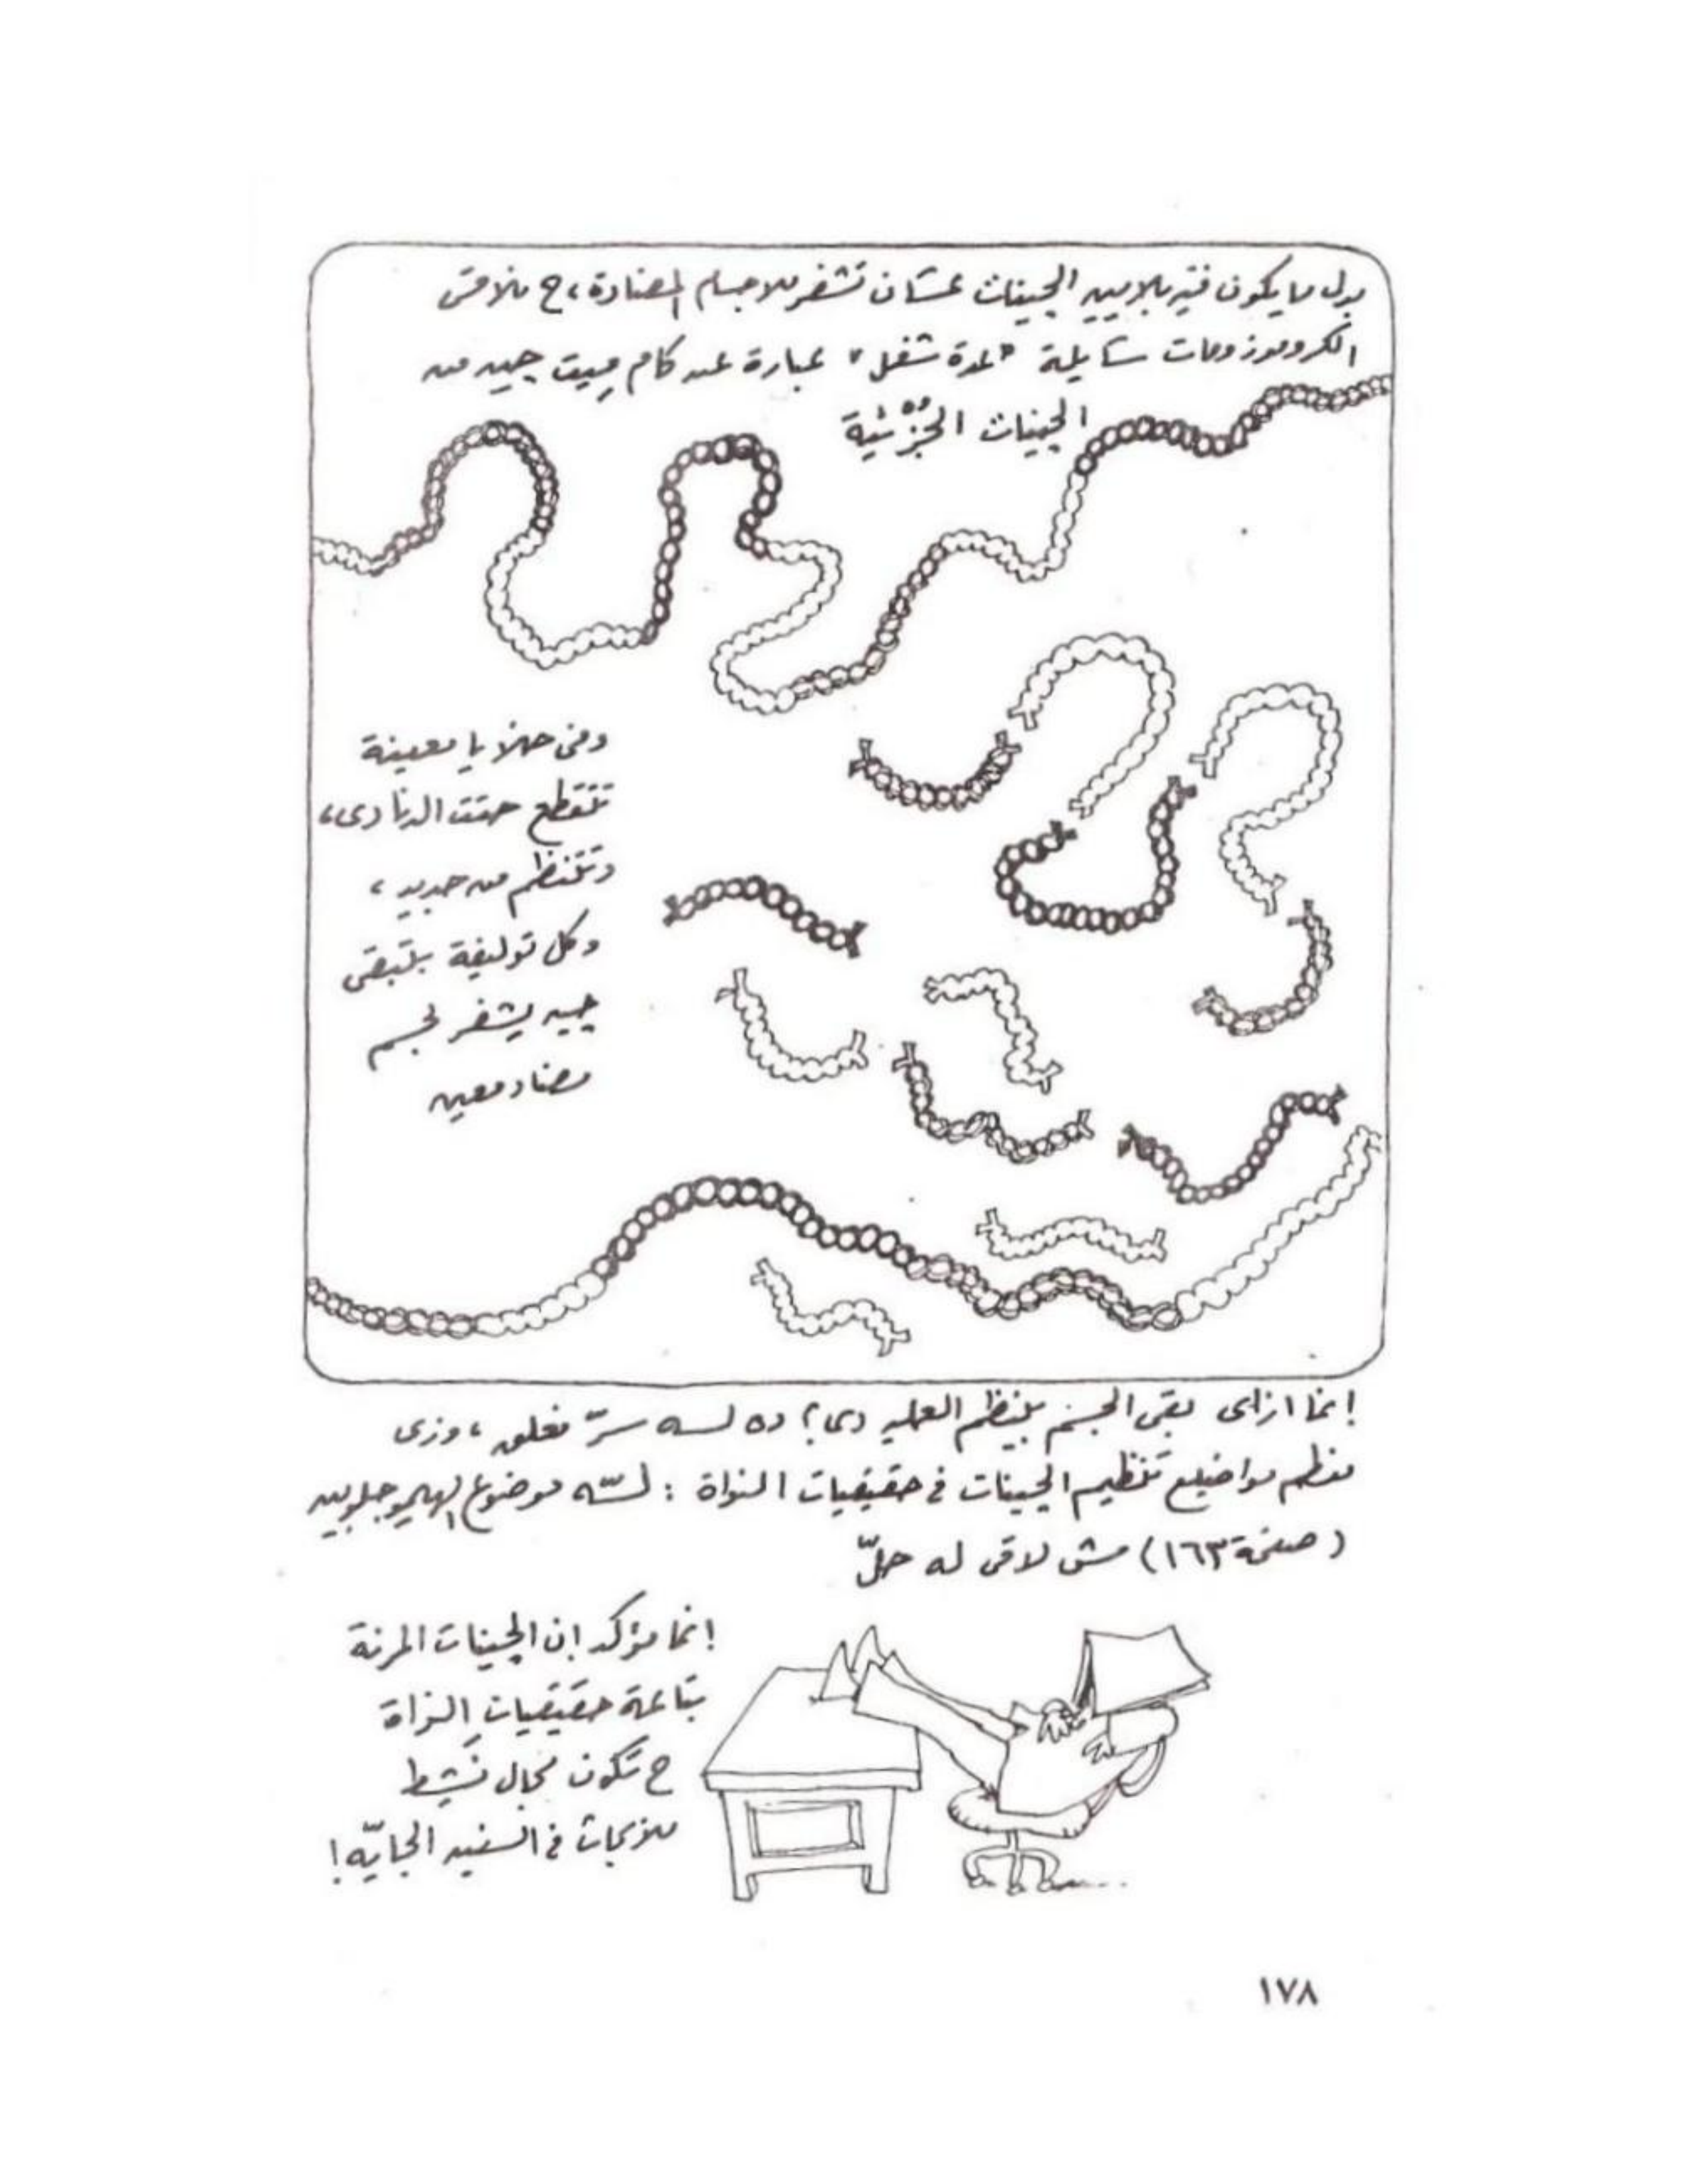 بدل ما يكون فيه بلايين الجينات عشان تشفر للاجسام المضادة، ح نلاقى
الكروموزومات شايلة "عدة شغل" عبارة عن كام ميت جين من
الجينات الجُزْئية
وفى خلايا معينة
تتقطع حتت الدنا دى،
وتتنظم من جديد،
وكل توليفة بتبقى
جين يشفر لجسم
مضاد معين
إنما ازاى بقى الجسم بينظم العملية دى؟ ده لسه سرّ مغلق، وزى
معظم مواضيع تنظيم الجينات فى حقيقيات النواة : لسّه موضوع الهيموجلوبين
(صفحة ١٦٣) مش لاقى له حلّ
إنما مؤكد إن الجينات المرنة
بتاعة حقيقيات النواة
ح تكون مجال نَشِط
للأبحاث فى السنين الجايّه!
١٧٨